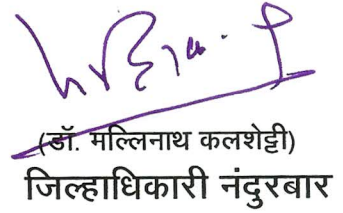 (डॉ. मल्लिनाथ कलशेट्टी)
जिल्हाधिकारी नंदुरबार